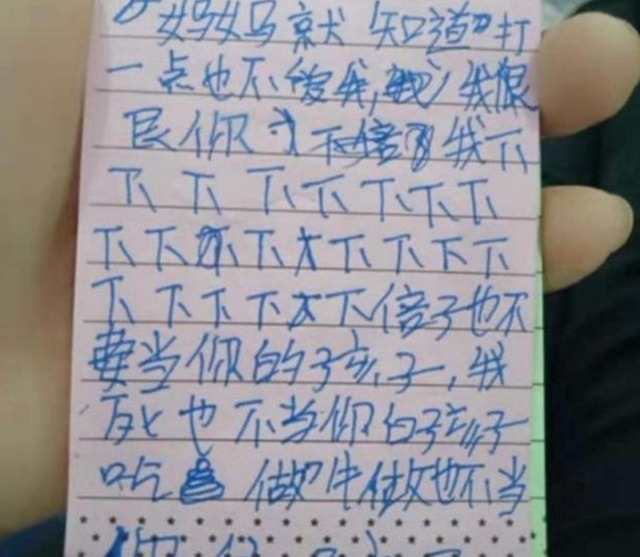 妈妈就知道打
一点也不爱我,我很
艮你 下倍子我下
下下下下下下下
下下下下下下下下
下下下下下下倍子也不
要当你的孩子,我
死也不当你的孩子
吃 做牛做也不当